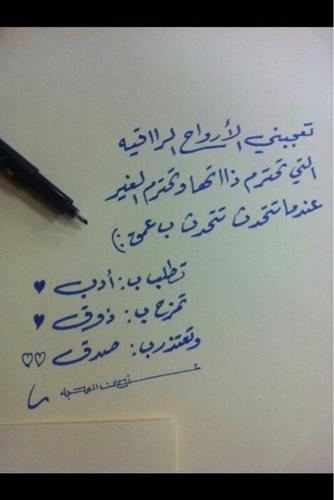 تعجبني الأرواح الراقيه
التي تحترم ذاتها وتحترم الغير
عندما تتحدث تتحدث ب عمق :)
تطلب ب : أدب ♥
تمزح ب : ذوق ♥
وتعتذر ب : صدق ♡♡